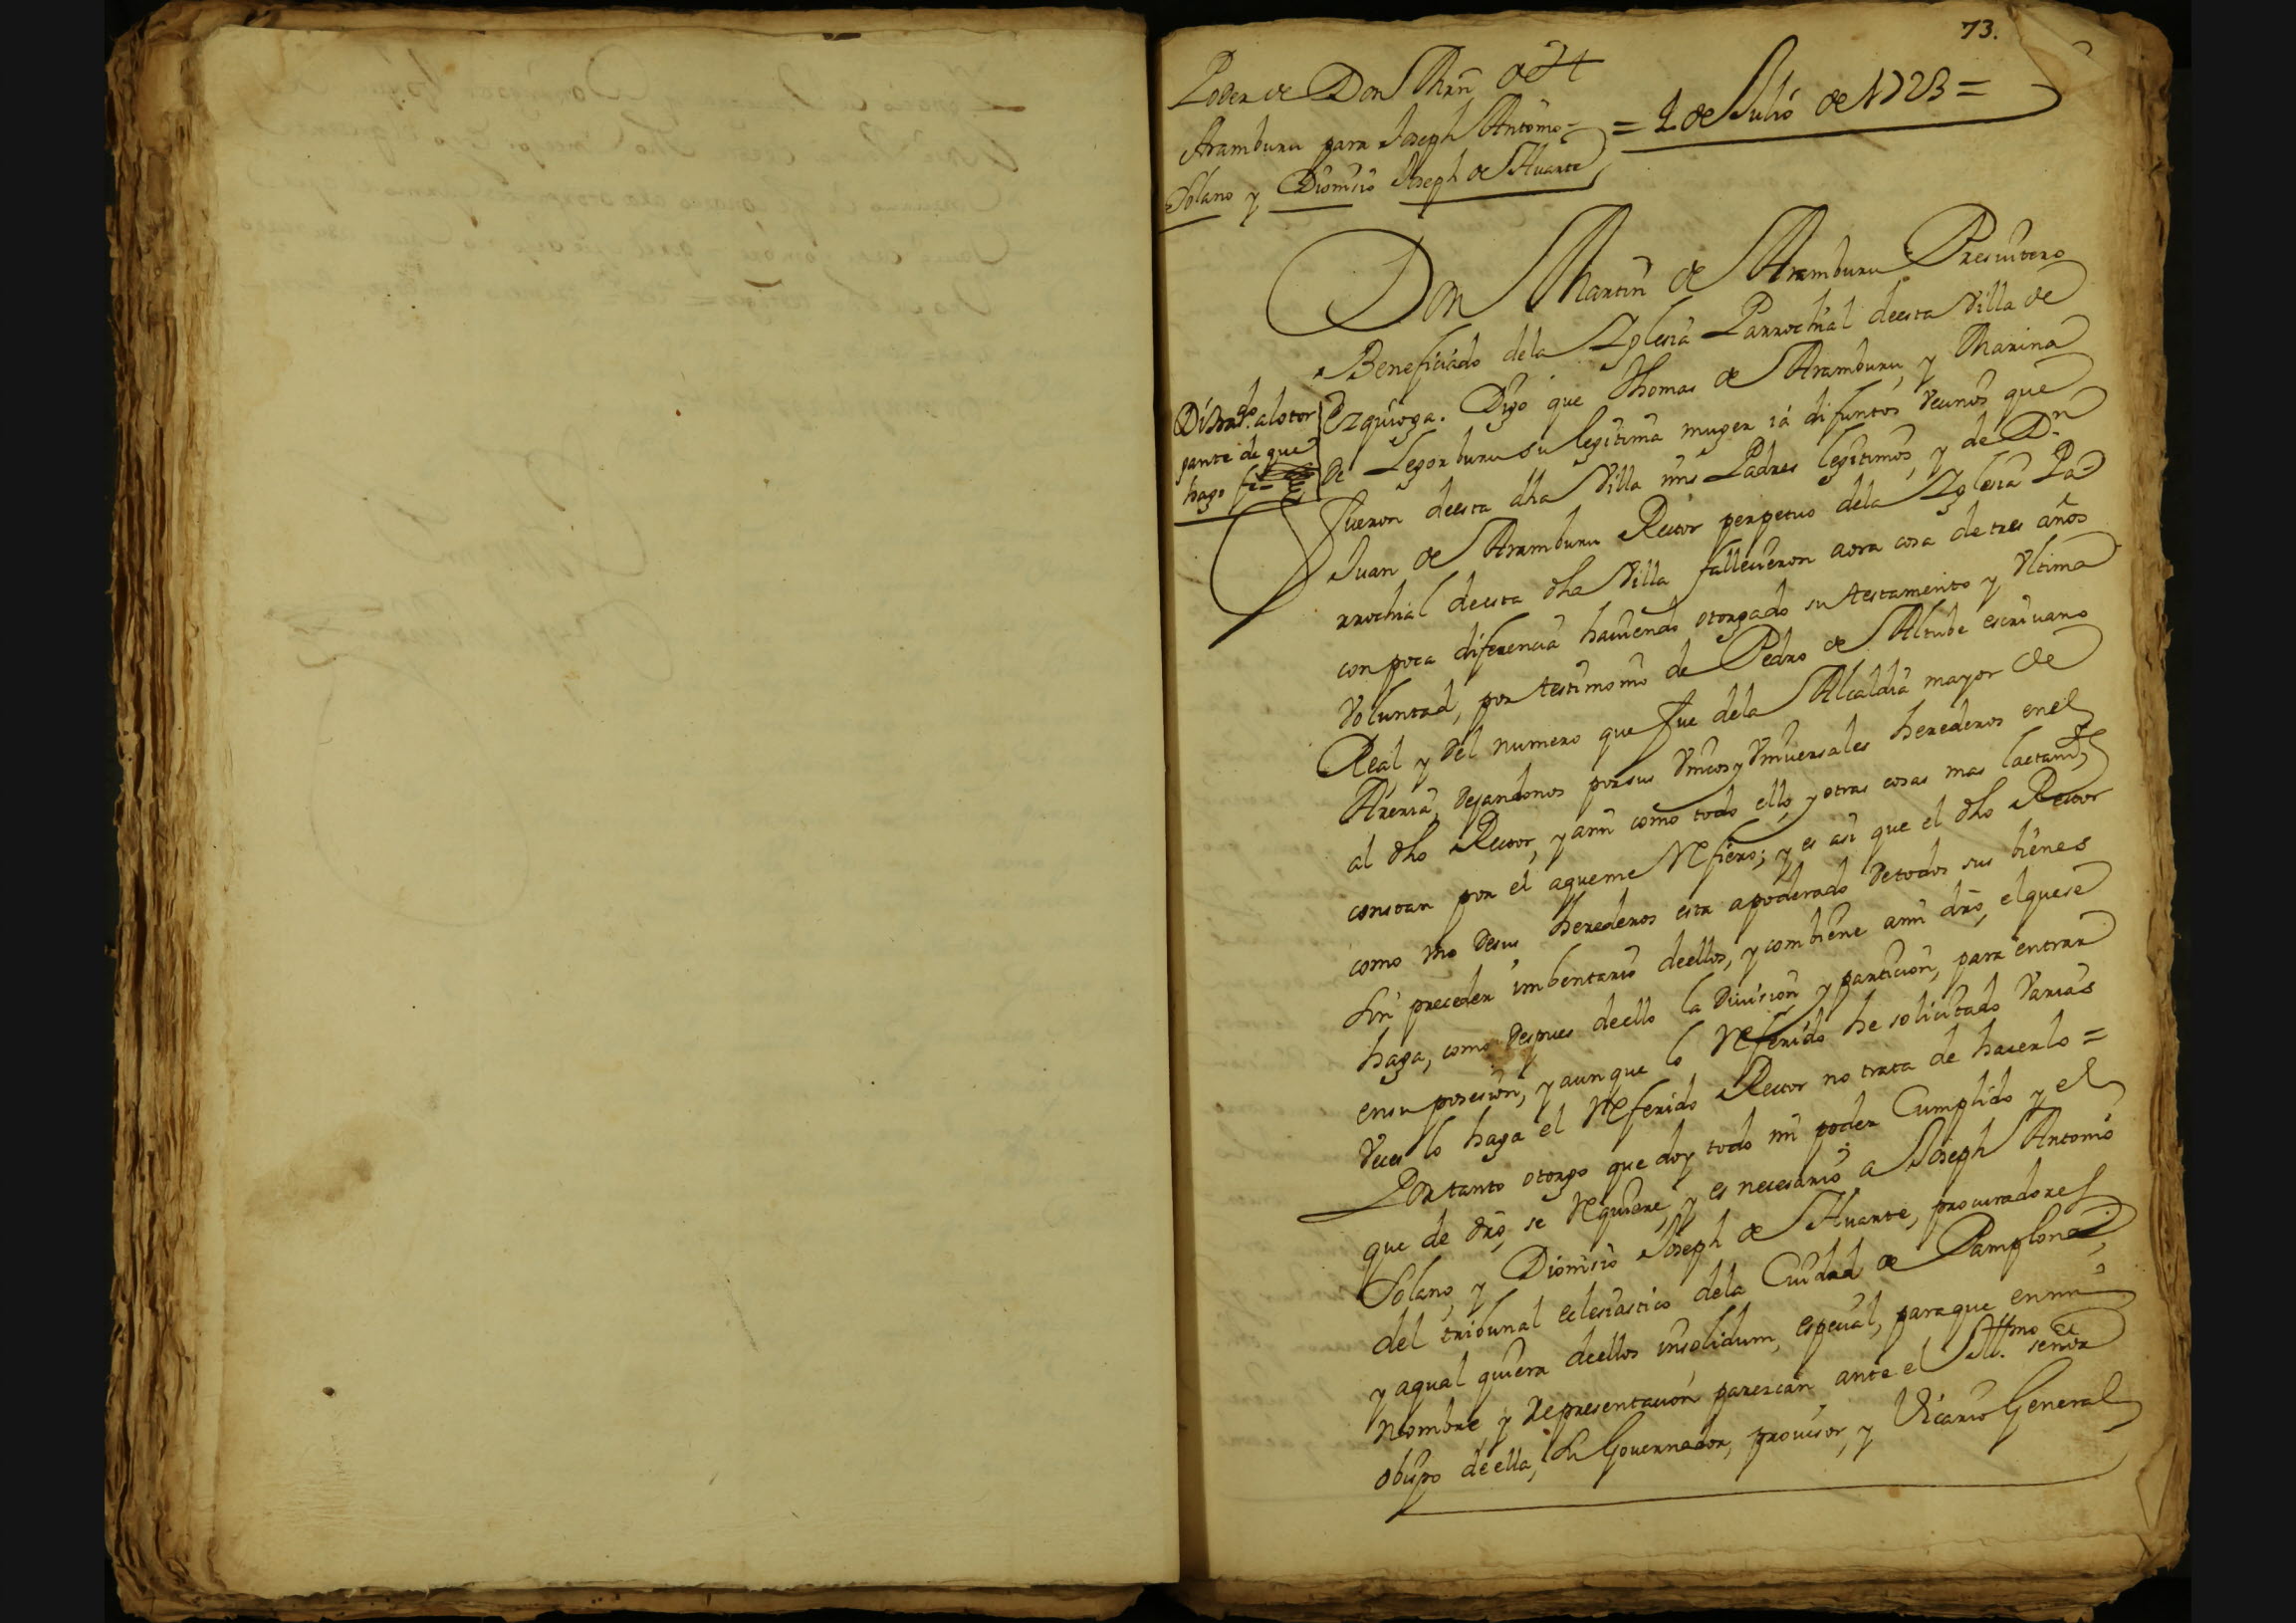 73.
Poder de Don Mrñ de
Aramburu para Joseph Antonio
Solano y Dionisio Joseph de Huarte
= 2 de Julio de 1723 =
Don Martin de Aramburu Presuitero
Beneficiado dela Yglesia Parrochial deesta Villa de
Ezquioga. Digo que Thomas de Aramburu, y Marina
de Legorburu su legitima muger ia difuntos vecinos que
fueron deesta dha Villa mis Padres legitimos, y de Dn
Juan de Aramburu Rector perpetuo dela Yglesia Pa
rrochial deesta dha Villa fallecieron aora cosa de tres años
con poca diferencia haviendo otorgado su testamento y Vltima
Voluntad, por testimonio de Pedro de Altube escrivano
Real y del numero que fue dela Alcaldia mayor de
Areria, dejandonos por sus Vnicos y Vniversales herederos enel
al dho Rector, y ami como todo ello, y otras cosas mas
constan por el aqueme Refiero; y es asi que el dho Rector
como vno desus herederos esta apoderado detodos sus bienes
sin preceder imbentario deellos, y combiene ami dro, elquese
haga, como despues deello la Division y particion, para entrar
ensu posesion, y aunque lo Referido he solicitado Varias
Veces lo haga el Referido Rector no trata de hacerlo =
Por tanto otorgo que doy todo mi poder Cumplido y el
que de dro, se Requiere, y es necesario a Joseph Antonio
Solano, y Dionisio Joseph de Huarte, procuradores
del tribunal eclesiastico dela Ciudad de Pamplona,
y aqual quiera deellos insolidum, especial, paraque enmi
Nombre y Representacion parezcan ante el Illmo señor
obispo deella, Su Governador, provisor, y Vicario General
alotor
gante de que
hago fe